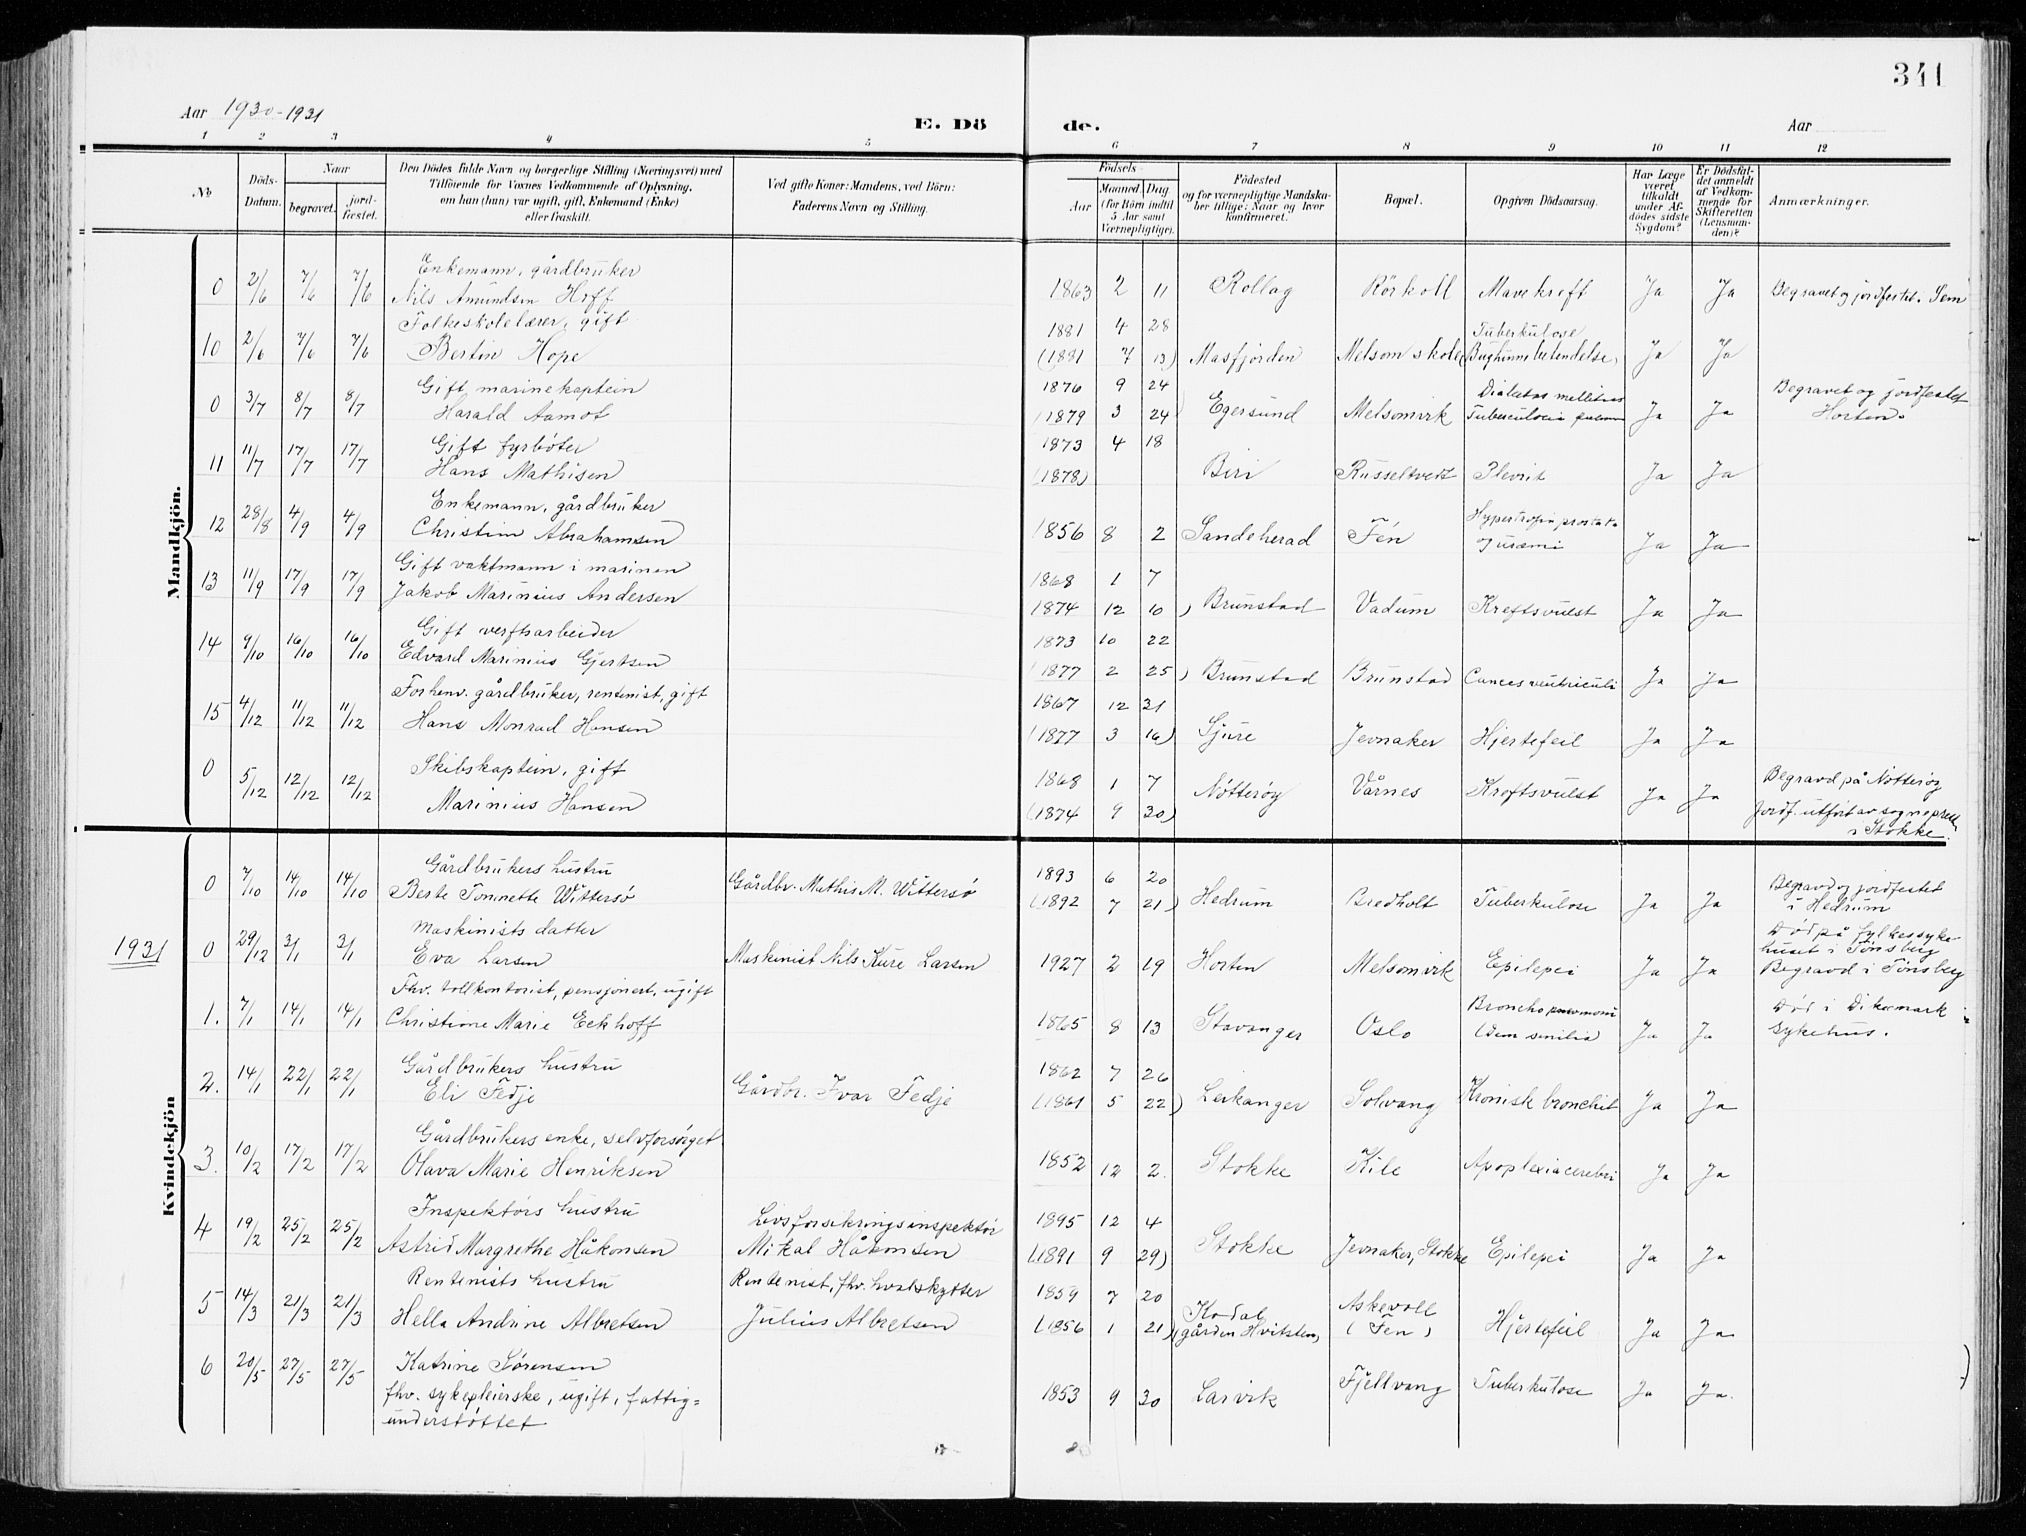 341
Aar 1930-1931
E. Döde.
Aar
1 2 3 4 5 6 7 8 9 10 11 12
No.
Döds-Datum.
Naar
begravet.
jord-fæstet.
Den Dödes fulde Navn og borgerlige Stilling (Næringsvei) med
Tilföiende for Voxnes Vedkommende af Oplysning,
om han (hun) var ugift, gift, Enkemand (Enke)
eller fraskilt.
Ved gifte Koner: Mandens, ved Börn:
Faderens Navn og Stilling.
Födsels-
Aar
Maaned. Dag.
(for Börn indtil
5 Aar samt
Værnepligtige).
Födested
og for værnepligtige Mandska-
ber tillige: Naar og hvor
konfirmeret.
Bopæl.
Opgiven Dödsaarsag.
Har Læge
været
tilkaldt
under Af-
dödes sidste
Sygdom?
Er Dödsfal-
det anmeldt
af Vedkom-
mende for
Skifteretten
(Lensman-
den)?
Anmærkninger.
Mandkjön.
0 2/6 7/6 7/6 Enkemann, gårdbruker
Nils Amundsen Hoff
1863 2 11 Rollag Rörkoll Mavekreft Ja Ja Begravet og jordfestet i Sem
10 2/6 7/6 7/6 Folkeskolelærer, gift
Bertin Hope
1881 4 28
(1881 7 13) Masfjorden Melsom skole Tuberkulose
Bughinnebetendelse Ja Ja
0 3/7 8/7 8/7 Gift, marinekaptein
Harald Aamot
1876 9 24
1879 3 24) Egersund Melsomvik mellitus
Ja Ja Begravet og jordfestet
Horten.
11 11/7 17/7 17/7 Gift fyrbøter
Hans Mathisen
1873 4 18
(1878) Biri Russeltvedt Plevrit Ja Ja
12 28/8 4/9 4/9 Enkemann, gårdbruker
Christian Abrahamsen
1856 8 2 Sandeherad Fén Hypertrofia prostata
og uræmi Ja Ja
13 11/9 17/9 17/9 Gift vaktmann i marinen
Jakob Marinius Andersen
1868 1 7
1874 12 10) Brunstad Vadum Kreftsvulst Ja Ja
14 9/10 16/10 16/10 Gift verftsarbeider
Edvard Marinius Gjertsen
1873 10 22
1877 2 25) Brunstad Brunstad Cancer ventriculi Ja Ja
15 4/12 11/12 11/12 Forhenv. gårdbruker, rentenist, gift
Hans Monrad Hansen
1867 12 31
(1877 3 16) Sjure Jevnaker Hjertefeil Ja Ja
0 5/12 12/12 12/12 Skibskaptein, gift
Marinius Hansen
1868 1 7
(1874 9 30) Nøtterøy Vårnes Kreftsvulst Ja Ja Begravd på Nøtterøy
Jordf. utført av sogneprest
i Stokke.
Kvindekjön
0 7/10 14/10 14/10 Gårdbrukers hustru
Berte Tomnette Wittersø Gårdbr. Mathis M. Wittersø
1893 6 20
(1892 7 21) Hedrum Bredholt Tuberkulose Ja Ja Begravd og jordfestet
i Hedrum
1931
0 29/12 3/1 3/1 Maskinists datter
Eva Larsen Maskinist Nils Kure Larsen
1927 2 19 Horten Melsomvik Epilepsi Ja Ja Død på fylkessyke
huset i Tønsberg
Begravd i Tønsberg
1. 7/1 14/1 14/1 Fhv. tollkontorist, pensjonert, ugift
Christiane Marie Eckhoff
1865 8 13 Stavanger Oslo Bronchopneumoni
(Dem senilia) Ja Ja Død i Dikemark
sykehus.
2. 14/1 22/1 22/1 Gårdbrukers hustru
Eli Fedje Gårdbr. Ivar Fedje
1862 7 26
(1861 5 22) Leikanger Solvang Kronisk bronchit Ja Ja
3. 10/2 17/2 17/2 Gårdbrukers enke, selvforsørget
Olava Marie Henriksen
1852 12 2. Stokke Kile Apoplexia cerebri Ja Ja
4 19/2 25/2 25/2 Inspektørs hustru
Astrid Margrethe Håkonsen Livsforsikringsinspektør
Mikal Håkonsen
1895 12 4
(1891 9 29) Stokke Jevnaker, Stokke Epilepsi Ja Ja
5 14/3 21/3 21/3 Rentenists hustru
Hella Andrine Albretsen Rentenist, fhv. hvalskytter
Julius Albretsen
1859 7 20
(1856 1 21) Kodal
gården Hvitstein, Askevoll
(Fen) Hjertefeil Ja Ja
6 20/5 27/5 27/5 Katrine Sørensen
fhv. sykepleierske, ugift, fattig=
understøttet
1853 9 30 Larvik Fjellvang Tuberkulose Ja Ja.